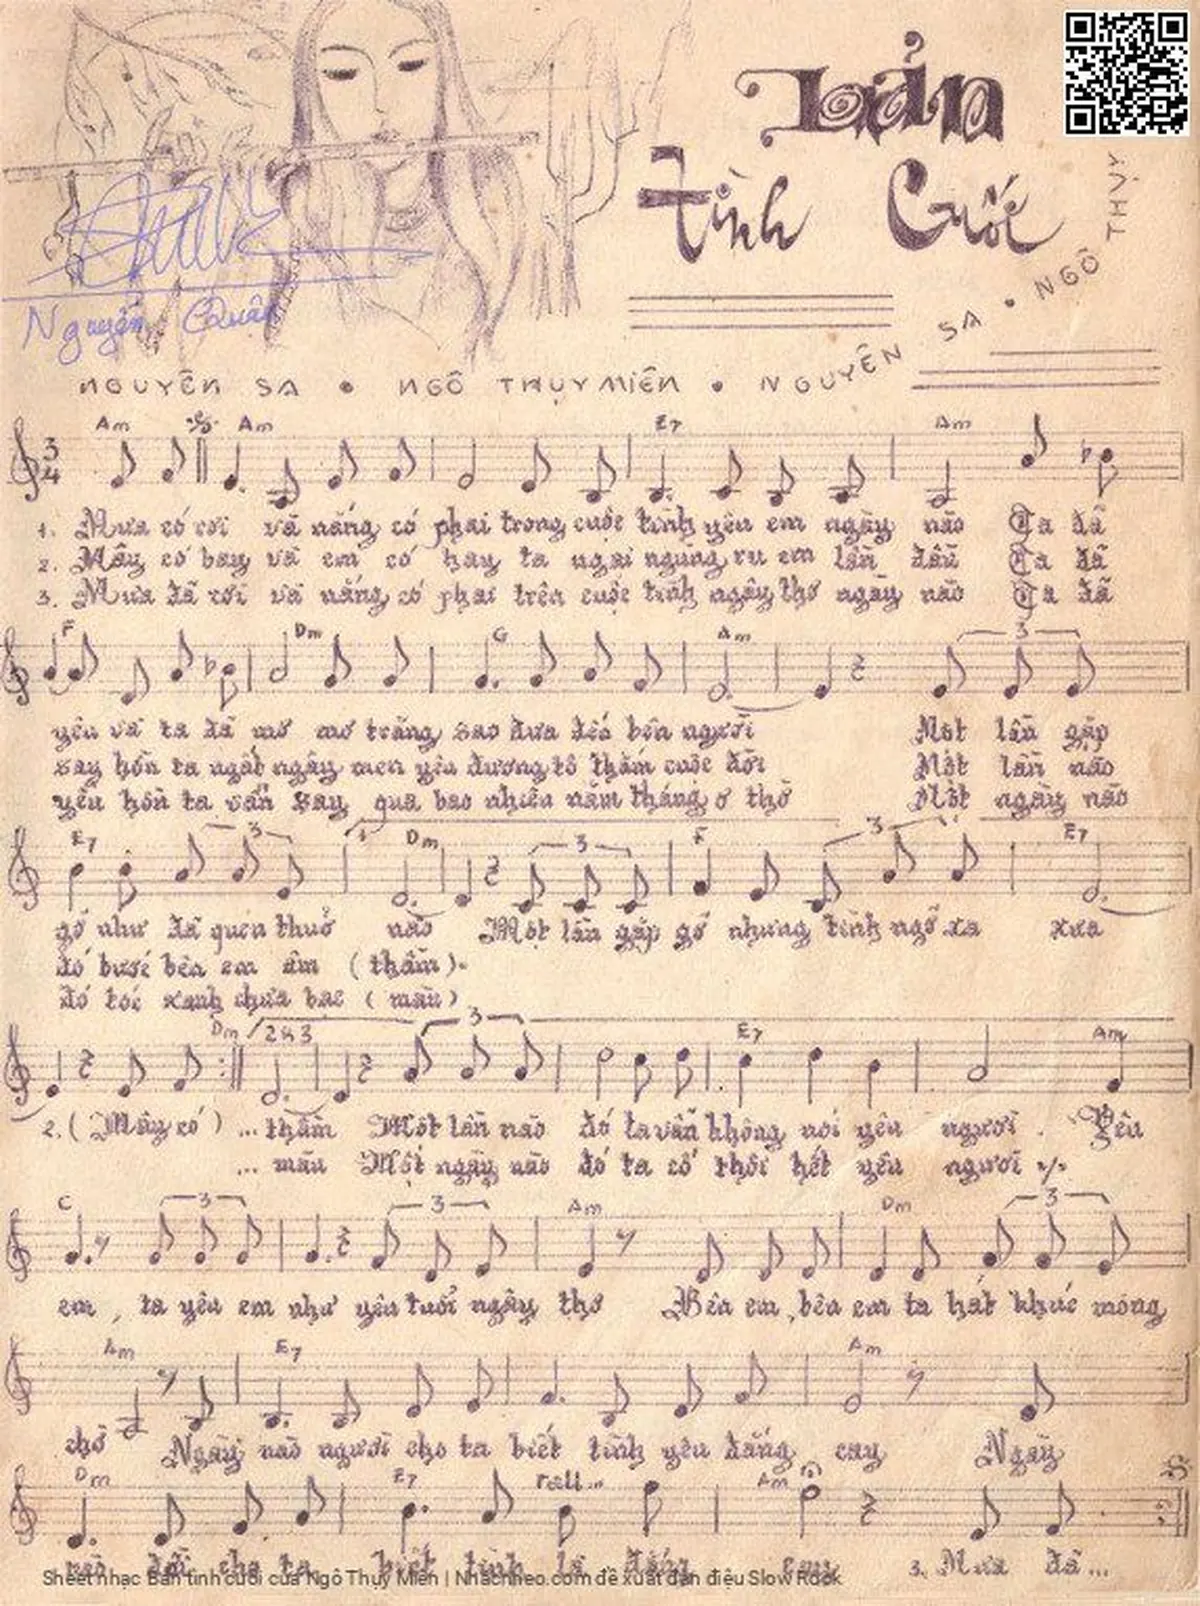 Bản
Tình Cuối
Nguyễn Quân
NGUYÊN SA • NGÔ THỤY MIÊN • NGUYÊN SA • NGÔ THỤY
Am Am E7 Am
3
4
1. Mưa có rơi và nắng có phai trong cuộc tình yêu em ngày nào Ta đã
2. Mây có bay và em có hay ta ngại ngùng ru em lần đầu Ta đã
3. Mưa đã rơi và nắng có phai trên cuộc tình ngây thơ ngày nào Ta đã
F Dm G Am 3
yêu và ta đã mơ mơ trăng sao đưa đến bên người Một lần gặp
say hồn ta ngất ngây men yêu đương tô thắm cuộc đời Một lần nào
yêu hồn ta vẫn say qua bao nhiêu năm tháng ơ thờ Một ngày nào
E7 3 1 Dm 3 F 3 E7
gỡ như đã quen thuở nào Một lần gặp gỡ nhưng tình ngỡ xa xưa
đó bươi bên em âm (thầm).
đó tóc xanh chưa bạc (màu)
Dm 2&3 3 E7 Am
2. (Mây có) ... thầm Một lần nào đó ta vẫn không nói yêu người. Yêu
... màu Một ngày nào đó ta cố thôi hết yêu người
C 3 3 Am Dm 3
em, ta yêu em như yêu tuổi ngây thơ Bên em, bên em ta hát khúc mong
Am E7 Am
chờ Ngày nào người cho ta biết tình yêu đắng cay Ngày
Dm E7 rall... Am
nào đời cho ta biết tình là đắng cay 3. Mưa đã...
Sheet nhạc Bản tình cuối của Ngô Thụy Miên | Nhacnheo.com đề xuất đàn điệu Slow Rock